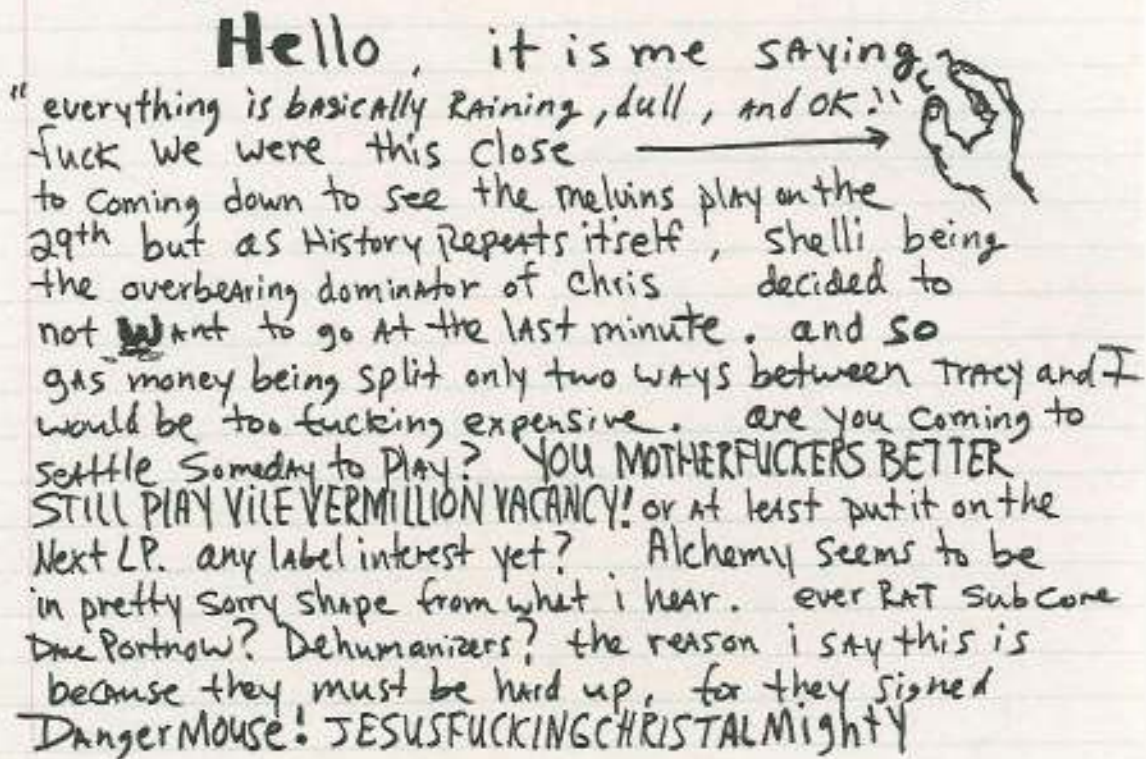 Hello, it is me saying,
"everything is basically Raining, dull, and OK!"
fuck We were this close
to coming down to see the melvins play on the
29th but as History Repeats itself, shelli being
the overbearing dominator of Chris decided to
not want to go At the last minute. and so
gas money being split only two ways between Tracy and I
would be too fucking expensive. are you coming to
seattle Someday to Play? YOU MOTHERFUCKERS BETTER
STILL PLAY VILE VERMILLION VACANCY! or At least put it on the
Next LP. any label interest yet? Alchemy seems to be
in pretty sorry shape from what i hear. ever RAT Subcore
Portnow? Dehumanizers? the reason i say this is
because they must be hard up, for they signed
DangerMouse! JESUSFUCKINGCHRISTALMighty